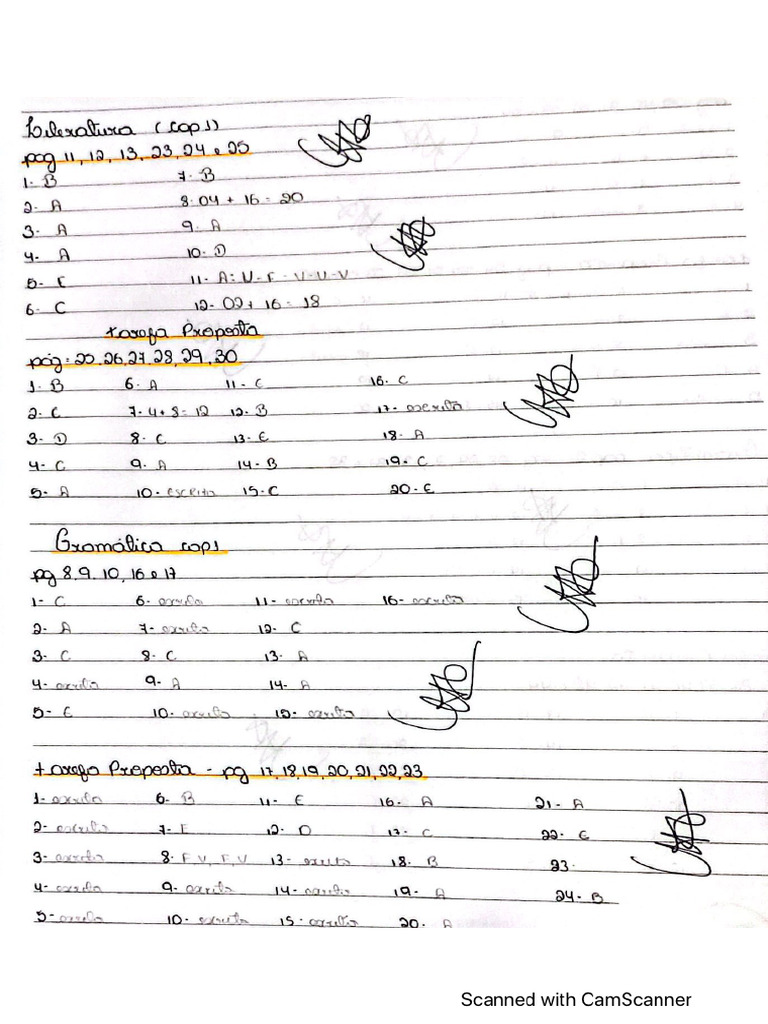 Literatura (cap1)
pag 11, 12, 13, 23, 24 e 25
1- B 7- B
2- A 8- 04 + 16 = 20
3- A 9- A
4- A 10- D
5- E 11- A: V-F-V-V-V
6- C 12- 02 + 16 = 18
tarefa Proposta
pág: 25, 26, 27, 28, 29, 30
1- B 6- A 11- C 16- C
2- C 7- 4+8=12 12- B 17- escrita
3- D 8- C 13- E 18- A
4- C 9- A 14- B 19- C
5- A 10- escrita 15- C 20- E
Gramática cap1
pg 8, 9, 10, 16 e 17
1- C 6- escrita 11- escrita 16- escrita
2- A 7- escrita 12- C
3- C 8- C 13- A
4- escrita 9- A 14- A
5- E 10- escrita 15- escrita
tarefa Proposta - pg 17, 18, 19, 20, 21, 22, 23
1- escrita 6- B 11- E 16- A 21- A
2- escrita 7- E 12- D 17- C 22- E
3- escrita 8- F, V, F, V 13- escrita 18- B 23-
4- escrita 9- escrita 14- escrita 19- A 24- B
5- escrita 10- escrita 15- escrita 20- A
Scanned with CamScanner